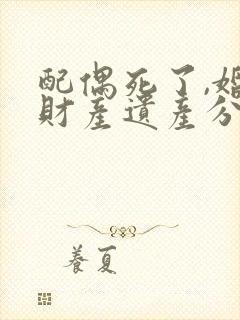 配偶死了,婚
財產遺產分
養夏